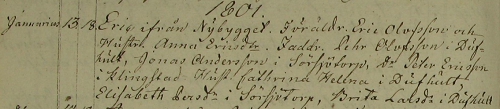 1801.
Januarius 13. 18. Eric ifrån Nybygget. Föräldr. Eric Olofsson och
Hustr. Anna Ericsdr. Faddr. Pehr Olofsson i Duf-
hult, Jonas Andersson i Sörsjötorp, Dr. Petr Ericsson
i Klingstad Hust. Cathrina Hellna i Dufhult
Elisabeth Persdr i Sörsjötorp, Brita Larsdr i Dufhult